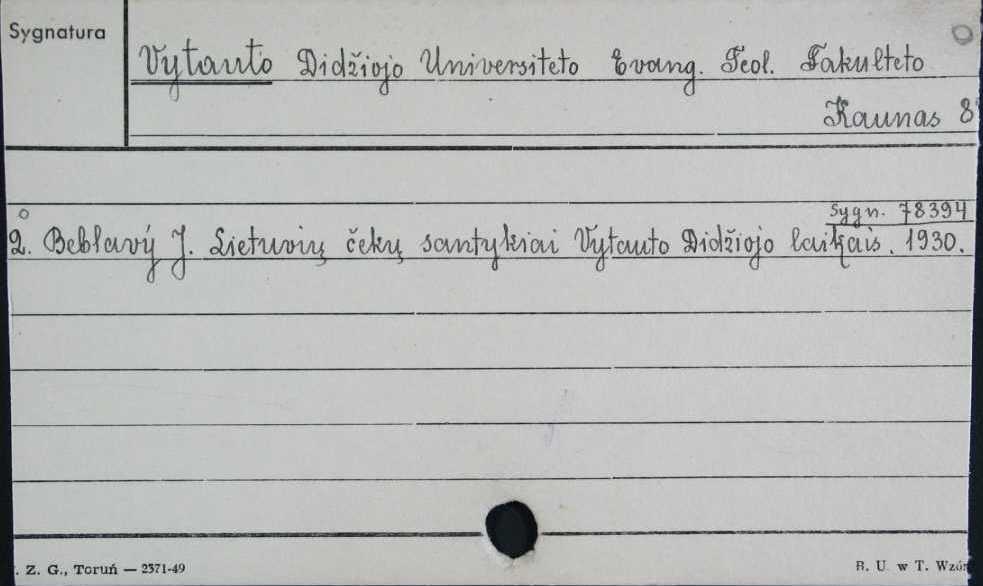 Sygnatura
Vytauto Didžiojo Universiteto Evang. Teol. Fakulteto
Kaunas 8°
Sygn. 78394
2. Beblavý J. Lietuvių čekų santykiai Vytauto Didžiojo laikais. 1930.
. Z. G., Toruń — 2371-49
B. U. w T. Wzór